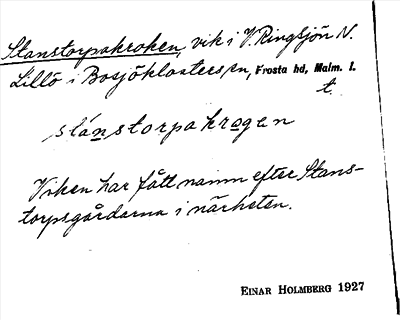 Stanstorpakroken, vik i V. Ringsjön N.
Lillö i Bosjöklosters sn, Frosta hd, Malm. l.
t.
slánstorpakrogen
Viken har fått namn efter Stans-
torpsgårdarna i närheten.
EINAR HOLMBERG 1927